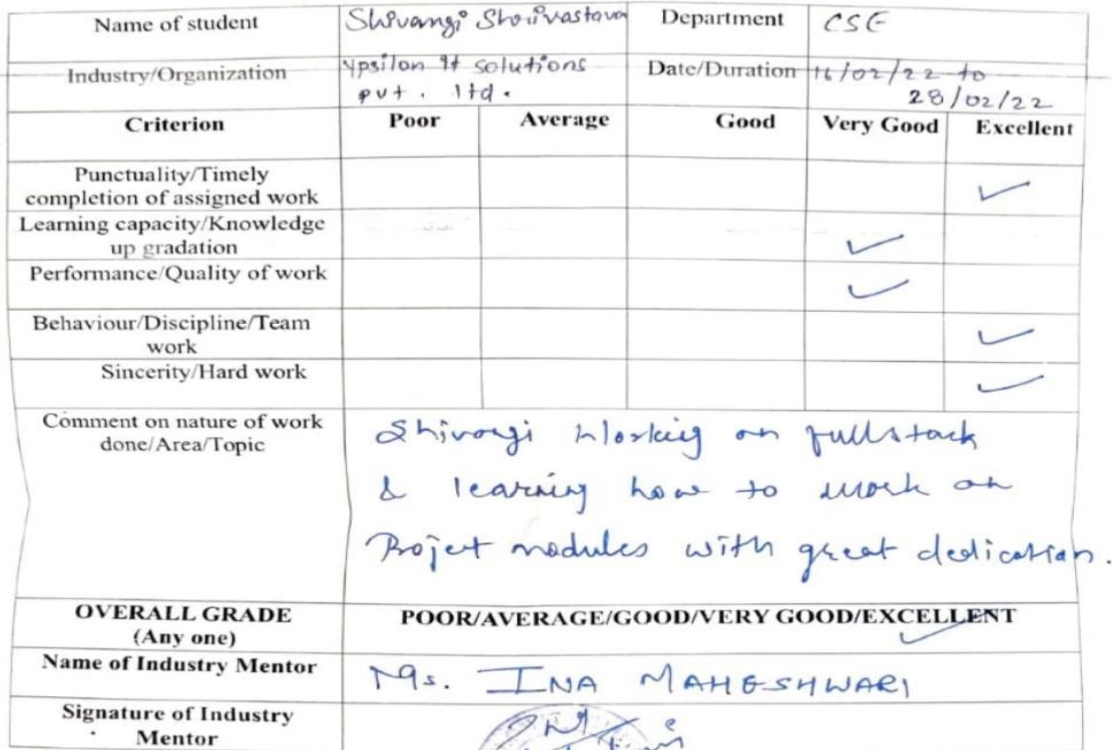 Name of student Shivangi Shrivastava Department CSE
Industry/Organization Ypsilon It solutions pvt. ltd. Date/Duration 16/02/22 to 28/02/22
Criterion Poor Average Good Very Good Excellent
Punctuality/Timely
completion of assigned work ✓
Learning capacity/Knowledge
up gradation ✓
Performance/Quality of work ✓
Behaviour/Discipline/Team
work ✓
Sincerity/Hard work ✓
Comment on nature of work
done/Area/Topic
Shivangi Working on fullstack
& learning how to work on
Project modules with great dedication.
OVERALL GRADE POOR/AVERAGE/GOOD/VERY GOOD/EXCELLENT ✓
(Any one)
Name of Industry Mentor Ms. INA MAHESHWARI
Signature of Industry
Mentor